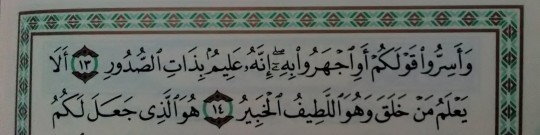 وَأَسِرُّوا۟ قَوْلَكُمْ أَوِ ٱجْهَرُوا۟ بِهِۦٓ ۖ إِنَّهُۥ عَلِيمٌۢ بِذَاتِ ٱلصُّدُورِ ١٣ أَلَا
يَعْلَمُ مَنْ خَلَقَ وَهُوَ ٱللَّطِيفُ ٱلْخَبِيرُ ١٤ هُوَ ٱلَّذِى جَعَلَ لَكُمُ